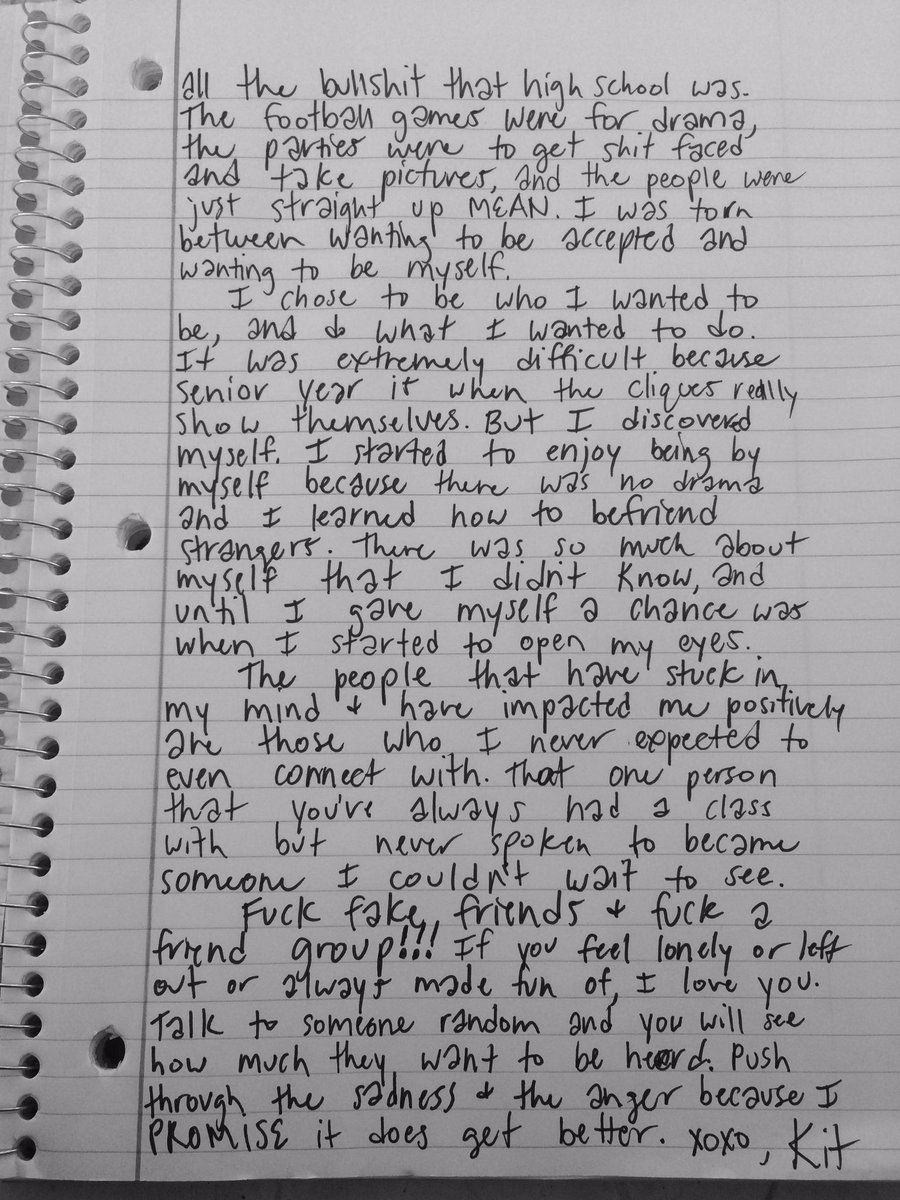 all the bullshit that high school was.
The football games were for drama,
the parties were to get shit faced
and take pictures, and the people were
just straight up MEAN. I was torn
between wanting to be accepted and
wanting to be myself.
I chose to be who I wanted to
be, and do what I wanted to do.
It was extremely difficult because
senior year it when the cliques really
show themselves. But I discovered
myself. I started to enjoy being by
myself because there was no drama
and I learned how to befriend
strangers. There was so much about
myself that I didn't know, and
until I gave myself a chance was
when I started to open my eyes.
The people that have stuck in
my mind & have impacted me positively
are those who I never expected to
even connect with. That one person
that you've always had a class
with but never spoken to became
someone I couldn't wait to see.
Fuck fake friends & fuck a
friend group!!! If you feel lonely or left
out or always made fun of, I love you.
Talk to someone random and you will see
how much they want to be heard. Push
through the sadness & the anger because I
PROMISE it does get better. xoxo, Kit